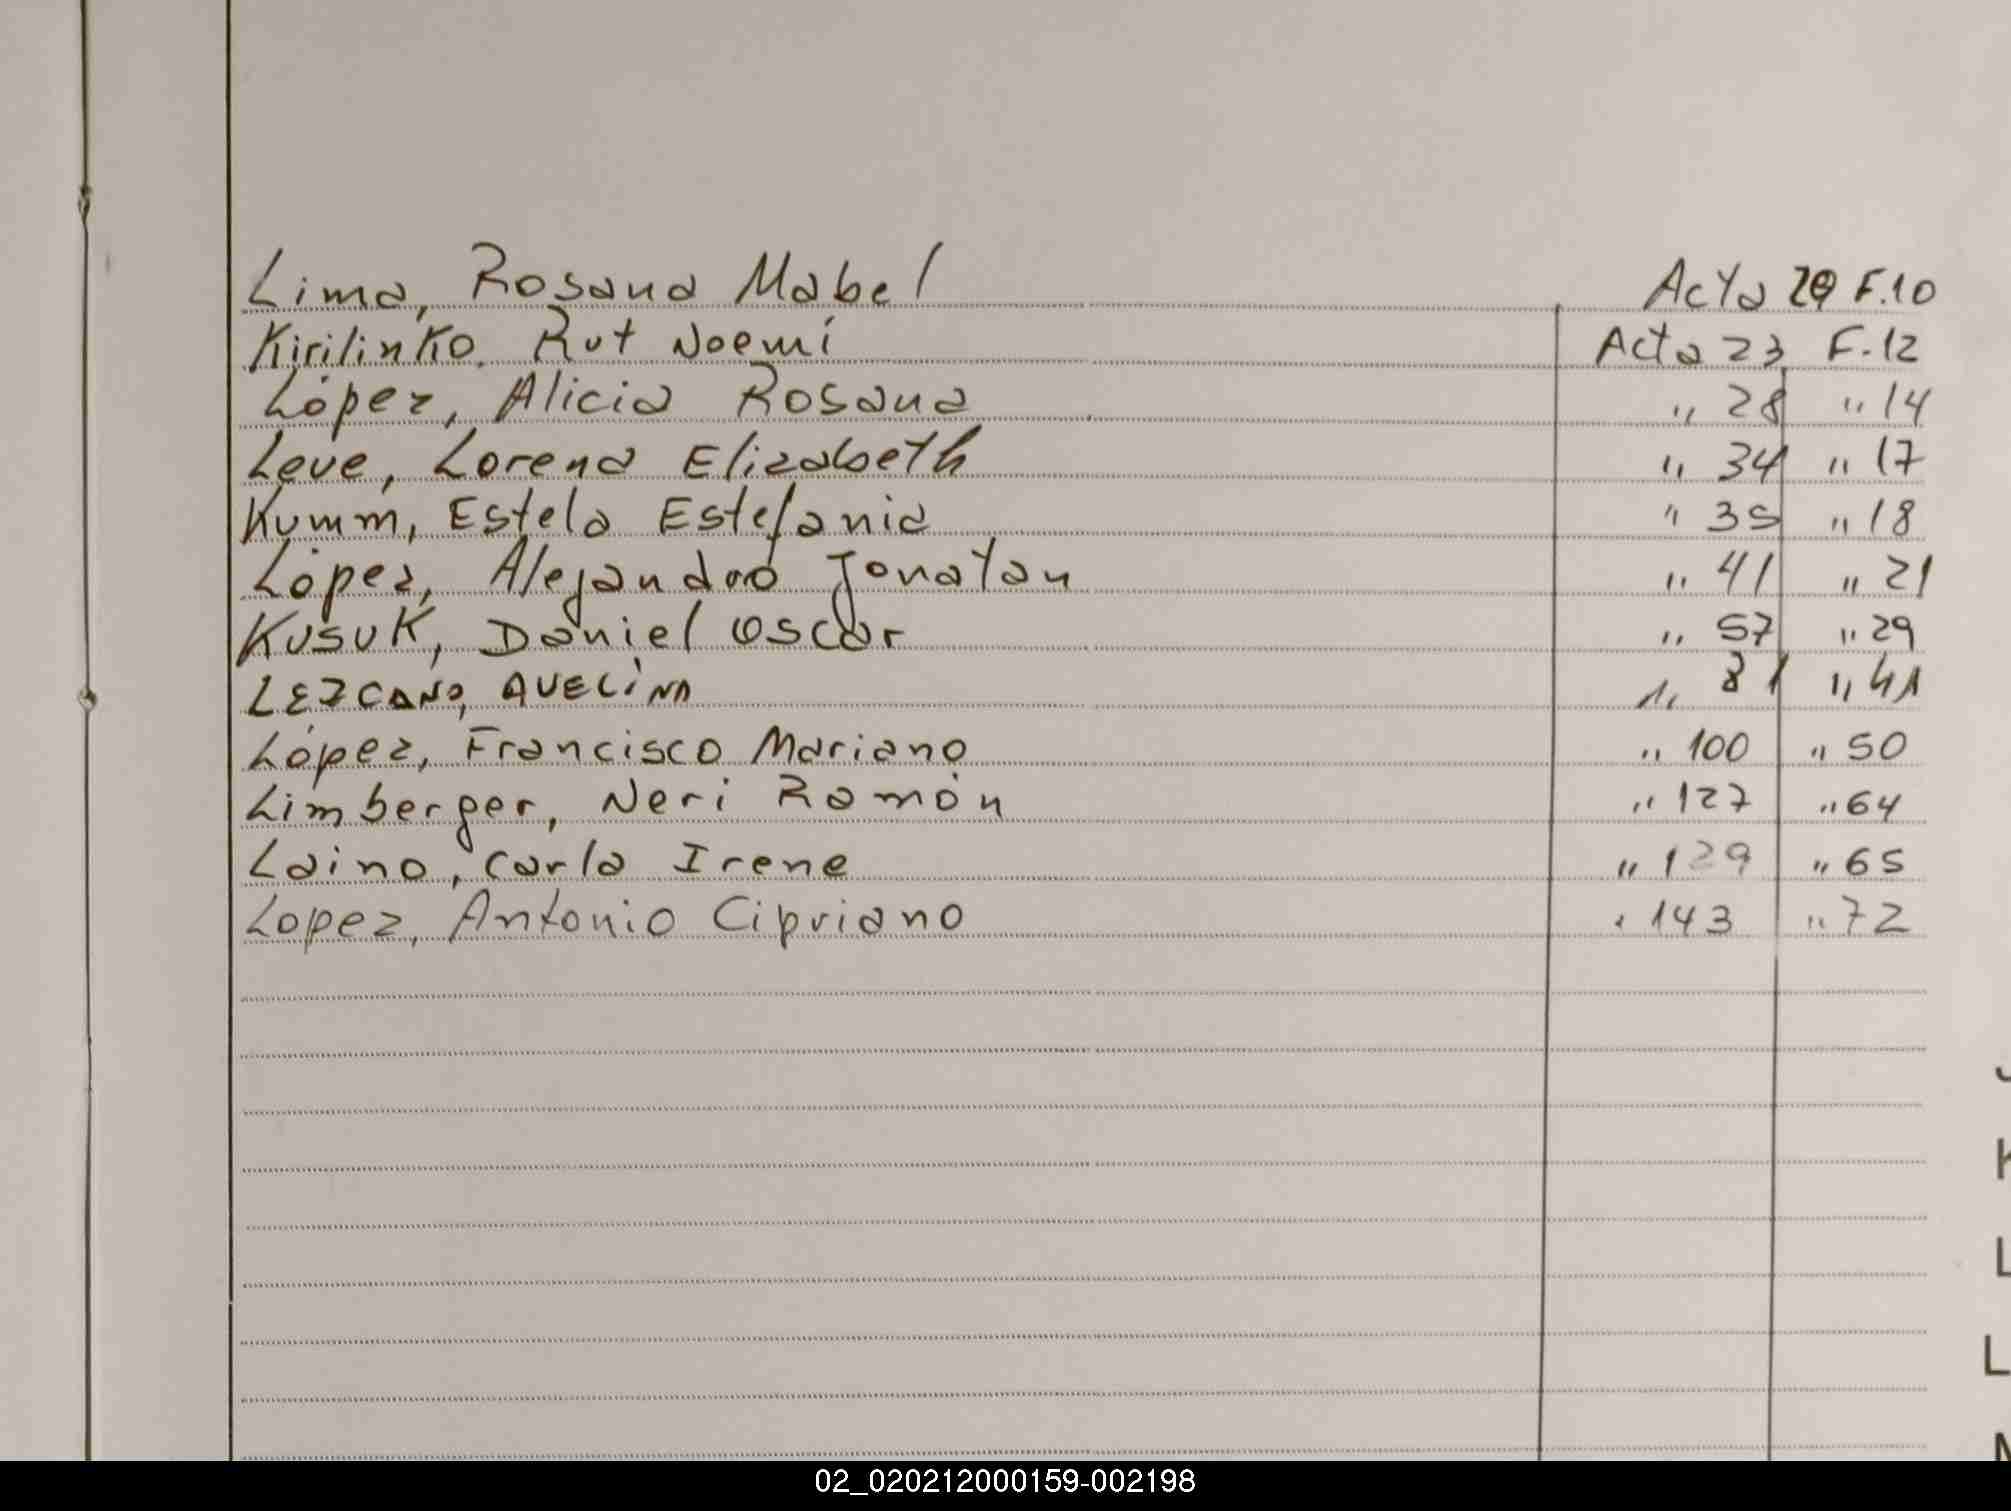 Lima, Rosana Mabel Acta 20 F.10
Kirilinko, Rut Noemí Acta 23 F.12
López, Alicia Rosana " 28 " 14
Leve, Lorena Elizabeth " 34 " 17
Kumm, Estela Estefania " 35 " 18
López, Alejandro Jonatan " 41 " 21
Kusuk, Daniel Oscar " 57 " 29
LEZCANO, AVELINA " 81 " 41
López, Francisco Mariano " 100 " 50
Limberger, Neri Ramón " 127 " 64
Laino, Carla Irene " 129 " 65
Lopez, Antonio Cipriano " 143 " 72
J
K
L
L
M
02_020212000159-002198